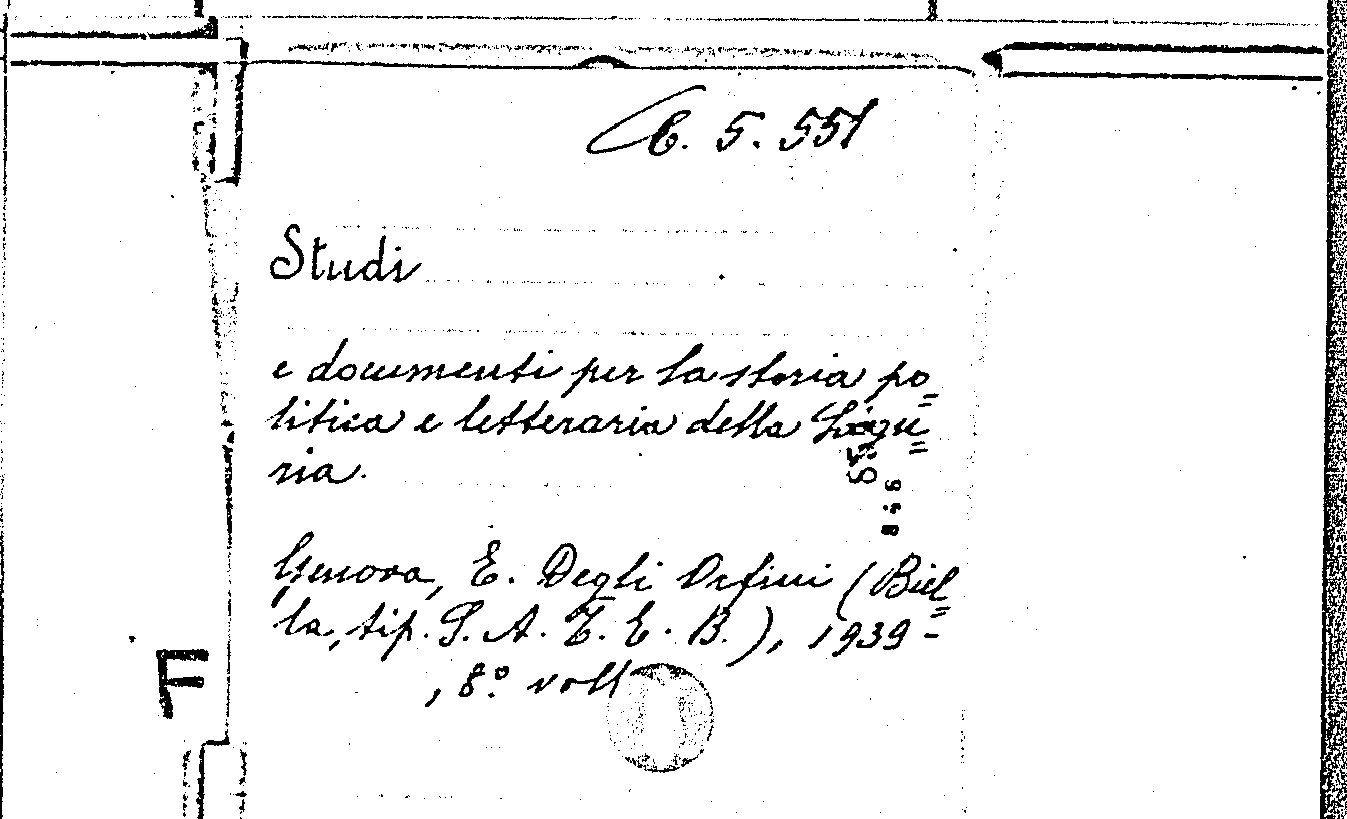 C. 5. 551
Studi
e documenti per la storia po=
litica e letteraria della Ligu=
ria.
Genova, E. Degli Orfini (Biel=
la, tip. S. A. T. E. B.), 1939-
, 8° voll
F